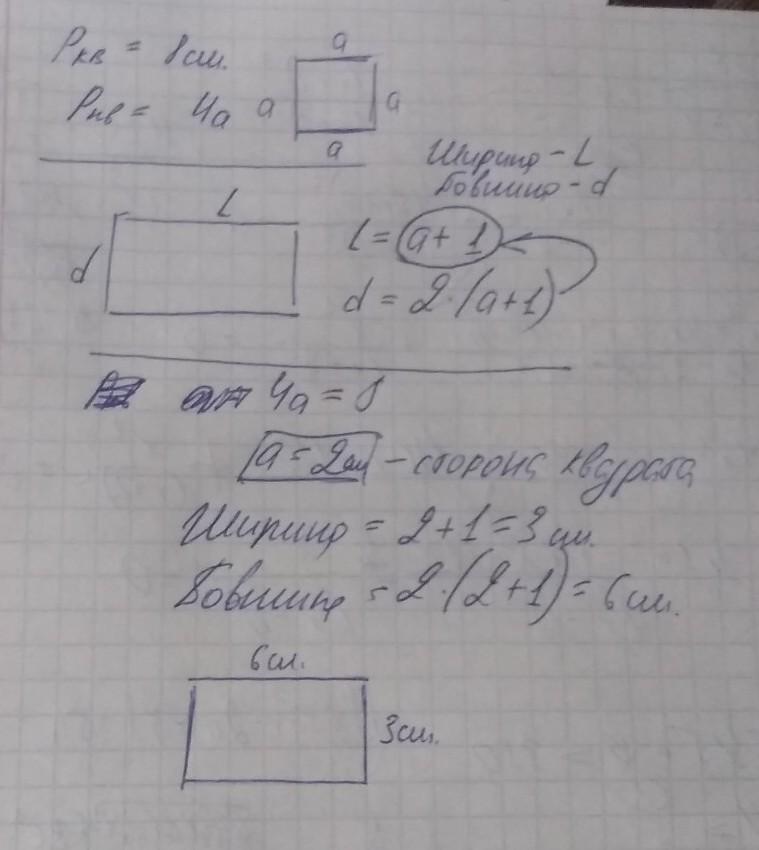 Pкв = 8см.
Pкв = 4a
a
a
a
a
Ширина - L
Довжина - d
L
d
L = a + 1
d = 2·(a+1)
4a = 8
a = 2см - сторона квадрата
Ширина = 2+1=3см.
Довжина = 2·(2+1)=6см.
6см.
3см.